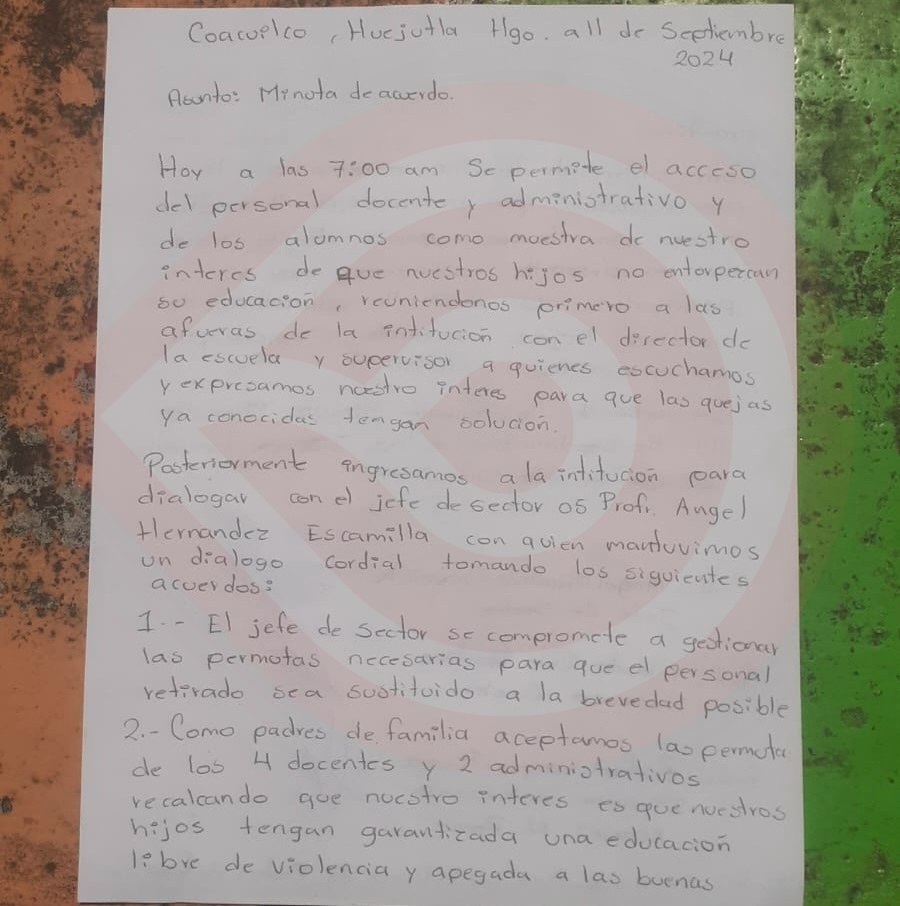 Coacuelco, Huejutla Hgo. a 11 de Septiembre
2024
Asunto: Minuta de acuerdo.
Hoy a las 7:00 am Se permite el acceso
del personal docente y administrativo y
de los alumnos como muestra de nuestro
interes de que nuestros hijos no entorpezcan
su educación, reuniendonos primero a las
afueras de la intitución con el director de
la escuela y supervisor a quienes escuchamos
y expresamos nuestro interes para que las quejas
ya conocidas tengan solución.
Posteriormente ingresamos a la intitución para
dialogar con el jefe de sector 05 Profr. Angel
Hernandez Escamilla con quien mantuvimos
un dialogo cordial tomando los siguientes
acuerdos:
1.- El jefe de sector se compromete a gestionar
las permutas necesarias para que el personal
retirado sea sustituido a la brevedad posible
2.- Como padres de familia aceptamos las permuta
de los 4 docentes y 2 administrativos
recalcando que nuestro interes es que nuestros
hijos tengan garantizada una educación
libre de violencia y apegada a las buenas